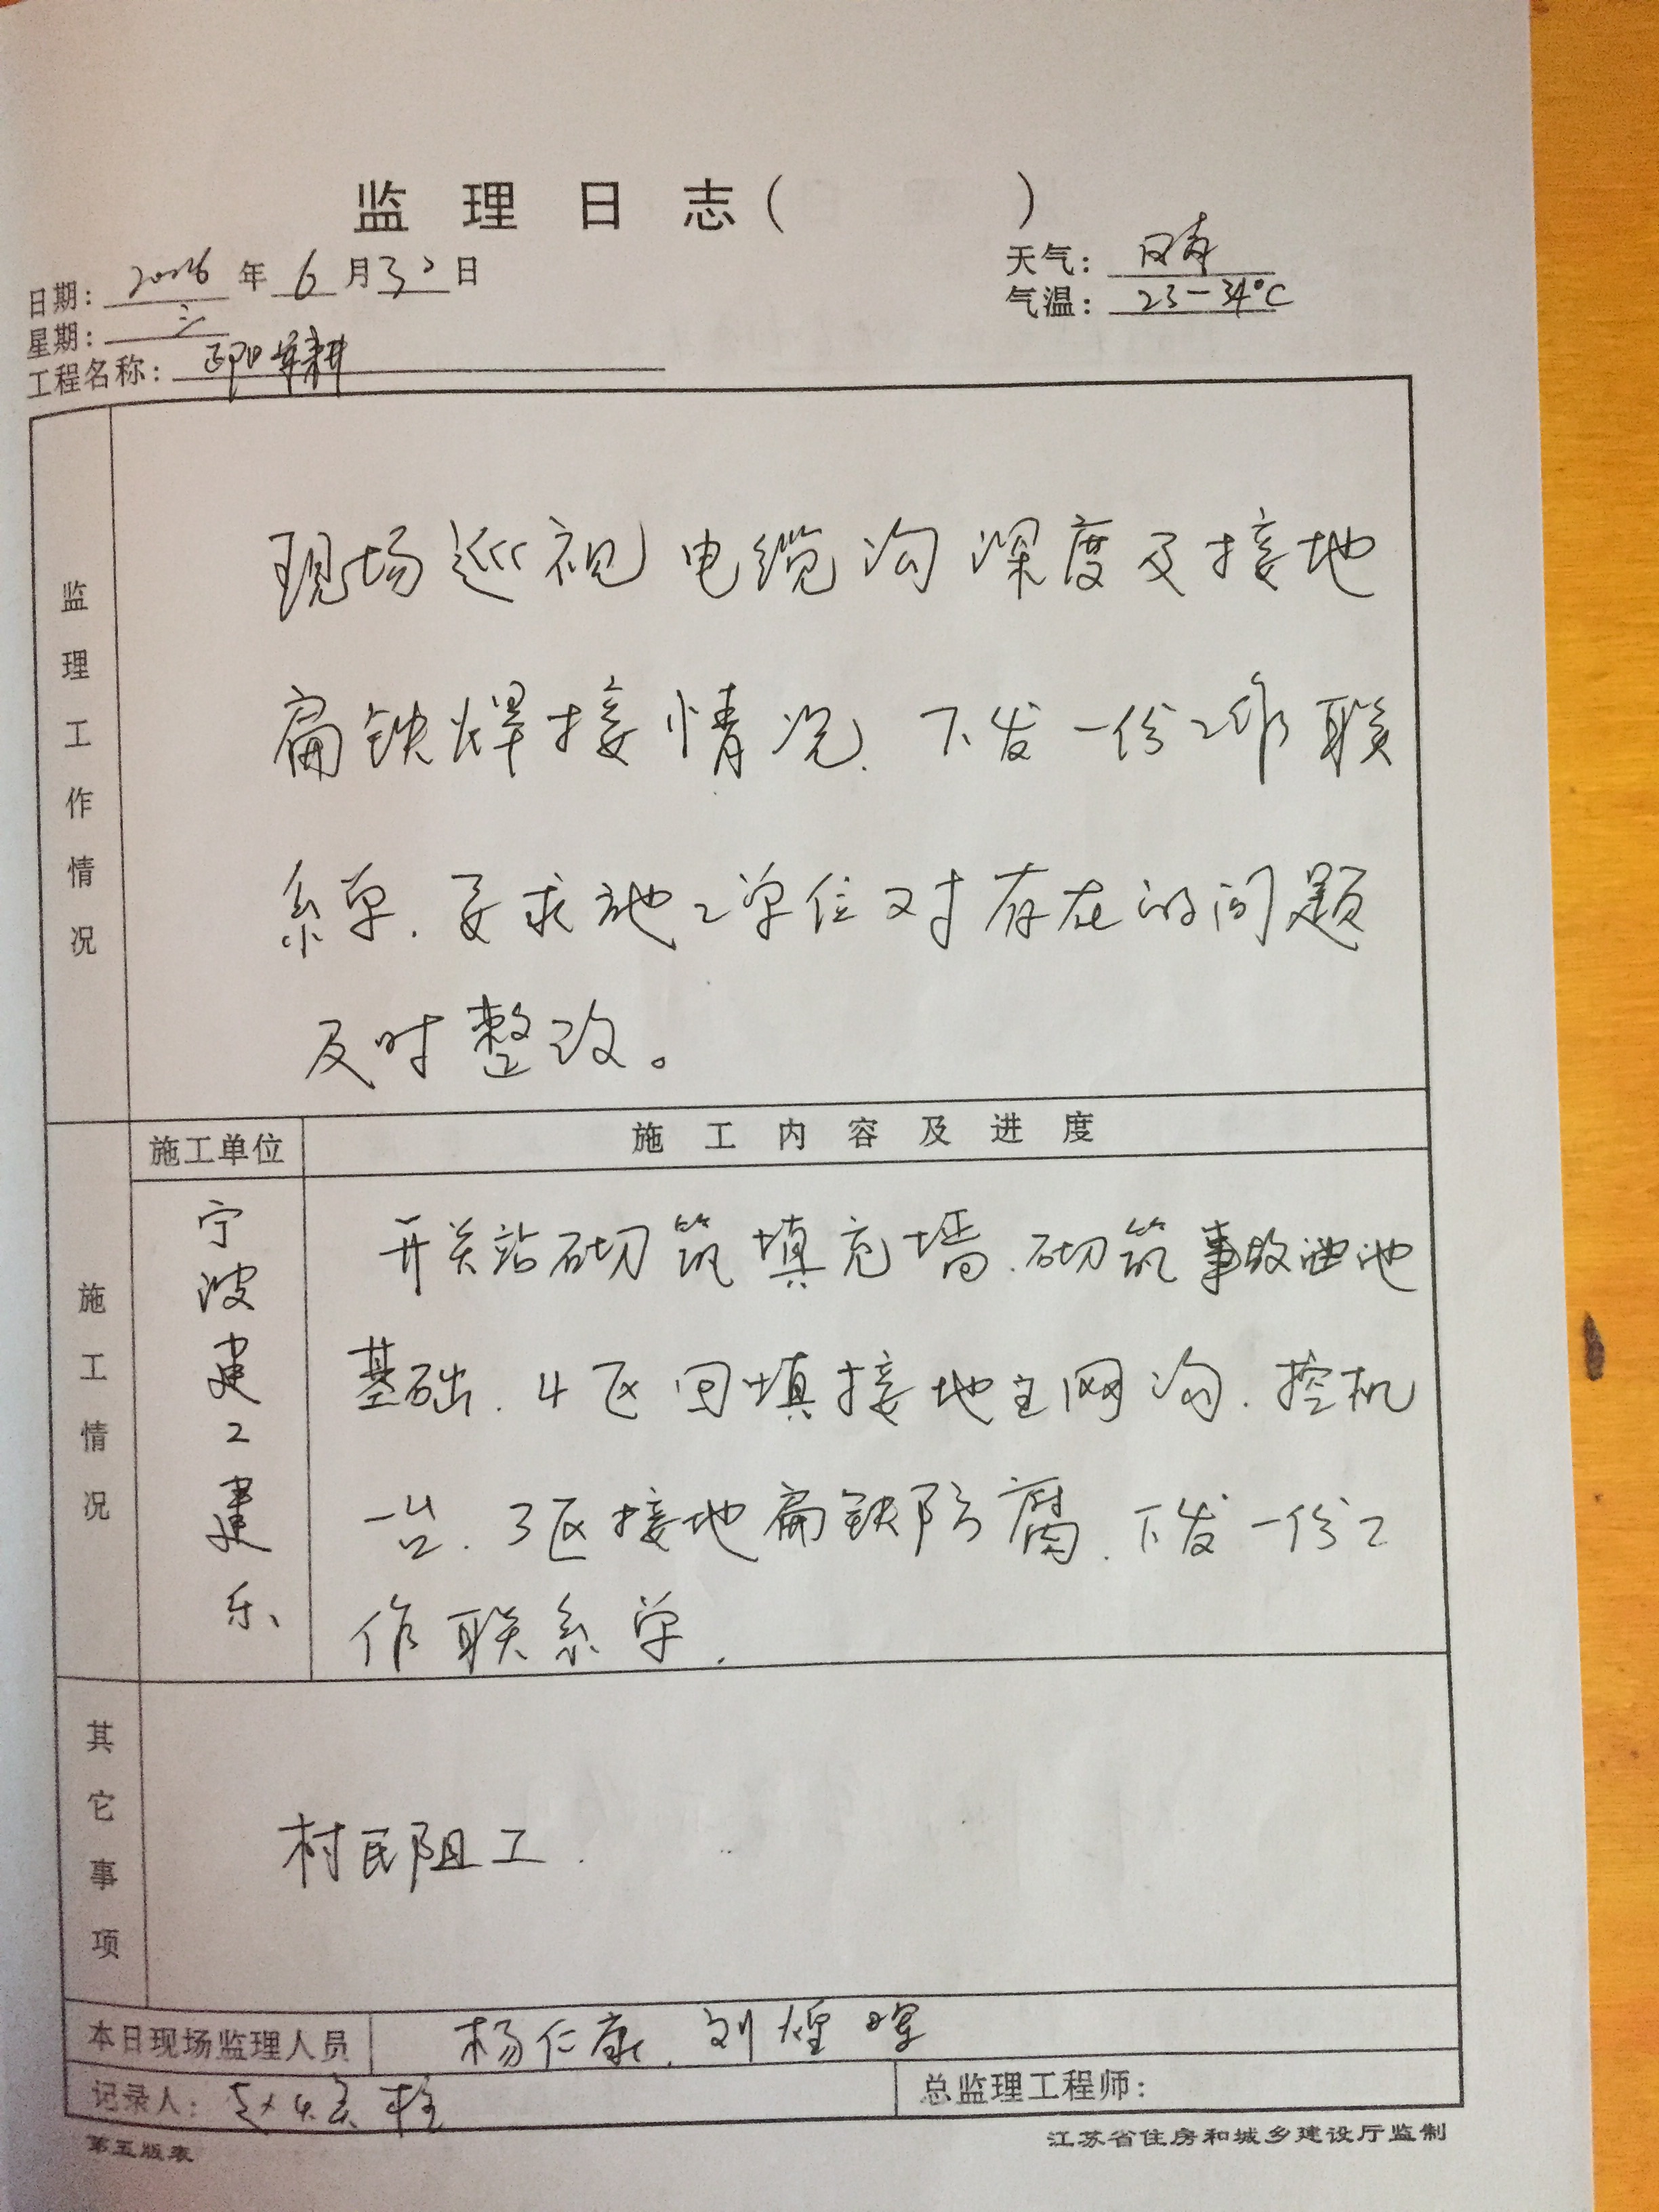 监理日志( )
日期: 年 6 月 30 日
天气: 晴
星期: 三
气温: 23-34℃
工程名称:
监理工作情况
现场巡视电缆沟深度及接地
扁铁焊接情况. 下发一份工作联
系单. 要求施工单位对存在的问题
及时整改。
施工单位
施工内容及进度
施工情况
宁波建工建乐
开关站砌筑填充墙.砌筑事故油池
基础. 4区回填接地主网沟. 挖机
一台. 3区接地扁铁防腐. 下发一份工
作联系单.
其它事项
村民阻工.
本日现场监理人员 杨仁康. 刘煌
记录人: 赵
总监理工程师:
第五版表
江苏省住房和城乡建设厅监制